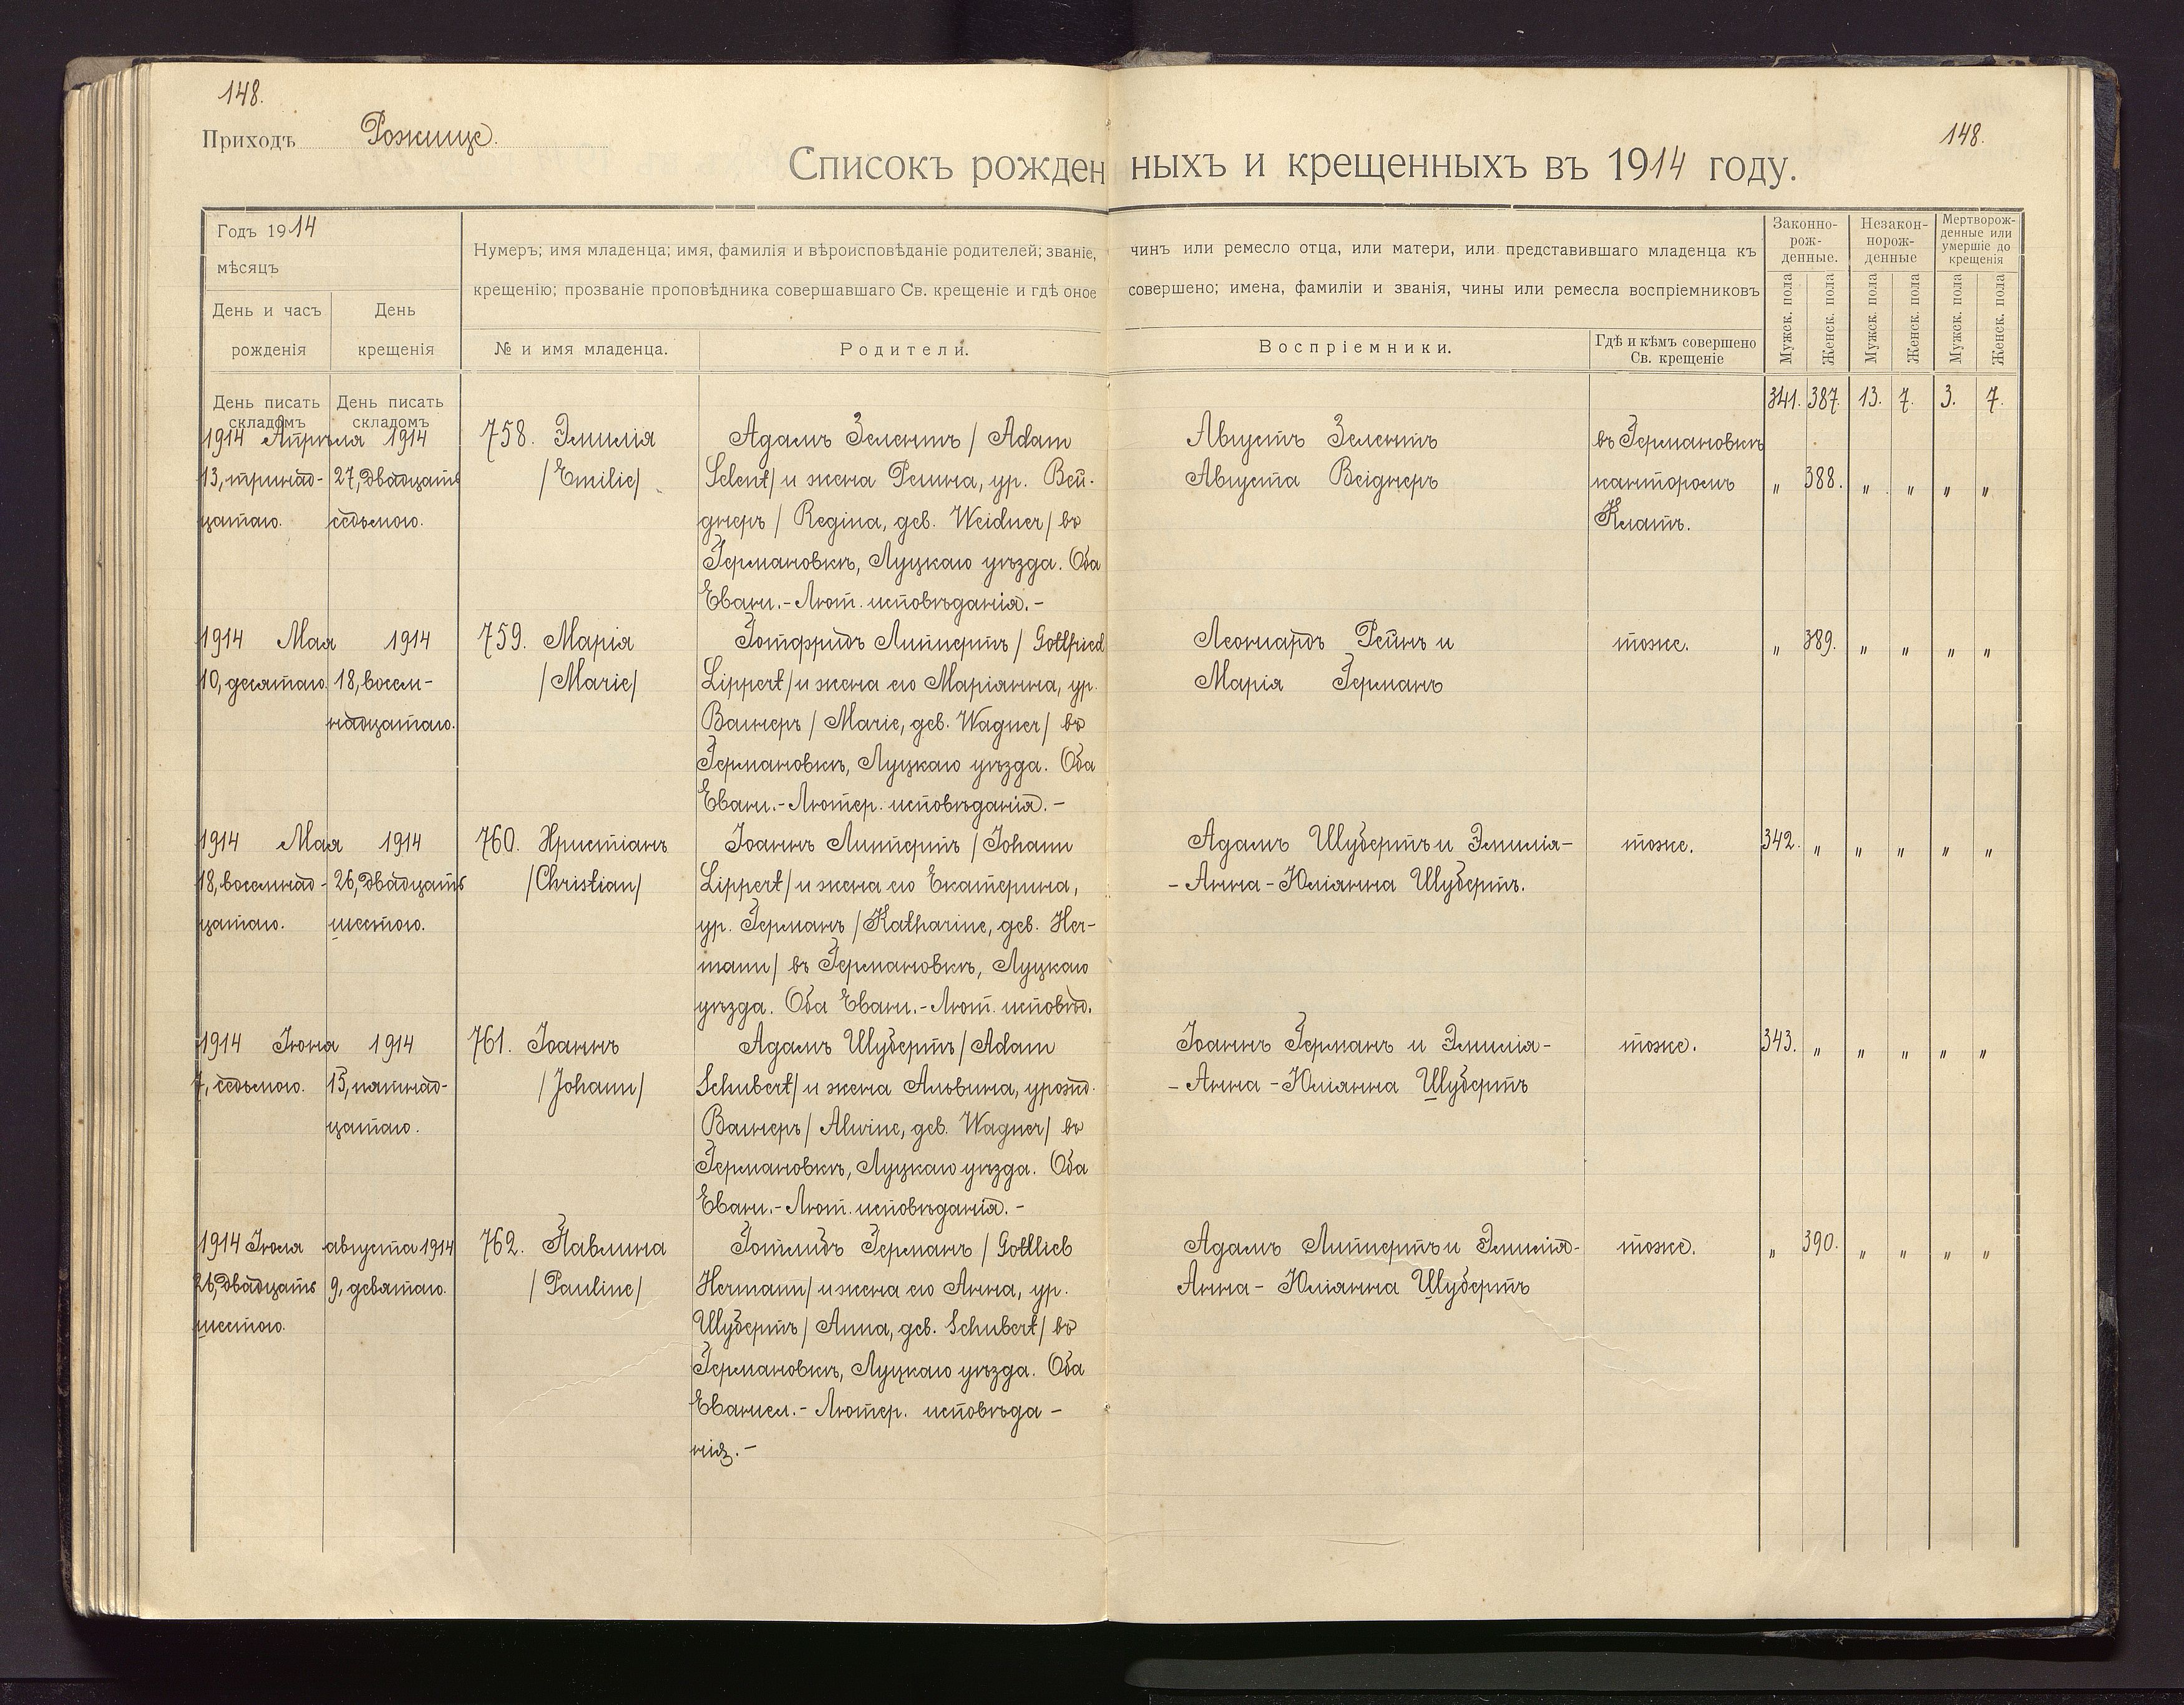 148.
148.
Приходъ Рожище.
Списокъ рожденныхъ и крещенныхъ въ 1914 году.
Годъ 1914
мѣсяцъ
День и часъ рожденія
День крещенія
Нумеръ; имя младенца; имя, фамилія и вѣроисповѣданіе родителей; званіе, чинъ или ремесло отца, или матери, или представившаго младенца къ
крещенію; прозваніе проповѣдника совершавшаго Св. крещеніе и гдѣ оное совершено; имена, фамиліи и званія, чины или ремесла воспріемниковъ
№ и имя младенца.
Родители.
Воспріемники.
Гдѣ и кѣмъ совершено
Св. крещеніе
Законно-
рож-
денные.
Незакон-
норож-
денные
Мертворож-
денные или
умершіе до
крещенія
Мужск. пола
Женск. пола
Мужск. пола
Женск. пола
Мужск. пола
Женск. пола
День писать складомъ
День писать складомъ
341. 387. 13. 7. 3. 7.
1914 Апрѣля 1914
13, тринад-
цатаго.
27, двадцать
седьмого.
758. Эмилія
/Emilie/
Адамъ Зелентъ / Adam
Selent/ и жена Регина, ур. Вей-
днеръ / Regina, geb. Weidner/ въ
Германовкѣ, Луцкаго уѣзда. Оба
Еванг.-Лют. исповѣданія.-
Августъ Зелентъ
Августа Вейднеръ
въ Германовкѣ
канторомъ
Клаттъ.
" 388. " " " "
1914 Мая 1914
10, десятаго.
18, восем-
надцатаго.
759. Марія
/Marie/
Готфридъ Липпертъ / Gottfried
Lippert/ и жена его Маріанна, ур.
Вагнеръ / Marie, geb. Wagner/ въ
Германовкѣ, Луцкаго уѣзда. Оба
Еванг.-Лютер. исповѣданія.-
Леонгардъ Рейнъ и
Марія Германъ
тоже.
" 389. " " " "
1914 Мая 1914
18, восемнад-
цатаго.
26, двадцать
шестого.
760. Христіанъ
/Christian/
Іоаннъ Липпертъ / Johann
Lippert/ и жена его Екатерина,
ур. Германъ / Katharine, geb. Her-
mann/ въ Германовкѣ, Луцкаго
уѣзда. Оба Еванг.-Лют. исповѣд.
Адамъ Шубертъ и Эмилія-
-Анна-Юліанна Шубертъ.
тоже.
342. " " " " "
1914 Іюня 1914
7, седьмого.
15, пятнад-
цатаго.
761. Іоаннъ
/Johann/
Адамъ Шубертъ / Adam
Schubert/ и жена Альвина, урожд.
Вагнеръ / Alwine, geb. Wagner/ въ
Германовкѣ, Луцкаго уѣзда. Оба
Еванг.-Лют. исповѣданія.-
Іоаннъ Германъ и Эмилія-
-Анна-Юліанна Шубертъ
тоже.
343. " " " " "
1914 Іюля августа 1914
26, двадцать
шестого.
9, девятаго.
762. Павлина
/Pauline/
Готлибъ Германъ / Gottlieb
Hermann/ и жена его Анна, ур.
Шубертъ / Anna, geb. Schubert/ въ
Германовкѣ, Луцкаго уѣзда. Оба
Евангел.-Лютер. исповѣда-
нія.-
Адамъ Липпертъ и Эмилія-
Анна-Юліанна Шубертъ
тоже.
" 390. " " " "